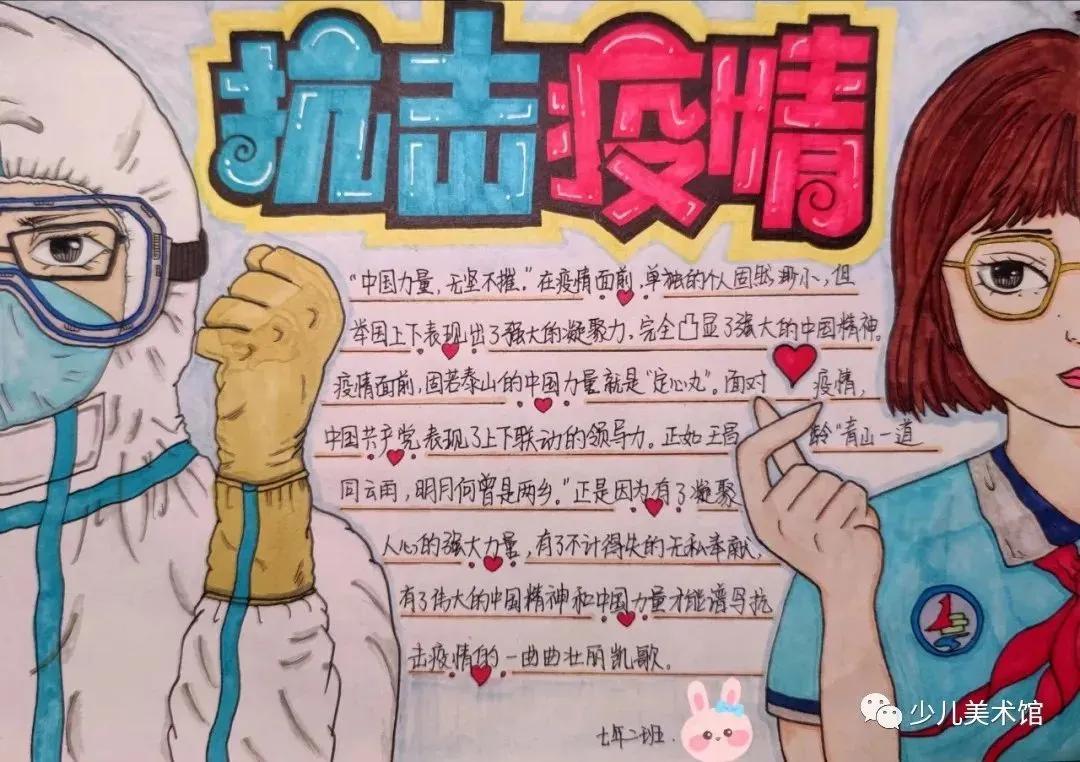 抗击疫情
“中国力量,无坚不摧。”在疫情面前,单独的个人固然渺小,但
举国上下表现出了强大的凝聚力,完全凸显了强大的中国精神。
疫情面前,固若泰山的中国力量就是“定心丸”。面对疫情,
中国共产党表现了上下联动的领导力。正如王昌龄“青山一道
同云雨,明月何曾是两乡。”正是因为有了凝聚
人心的强大力量,有了不计得失的无私奉献,
有了伟大的中国精神和中国力量才能谱写抗
击疫情的一曲曲壮丽凯歌。
七年二班.
少儿美术馆